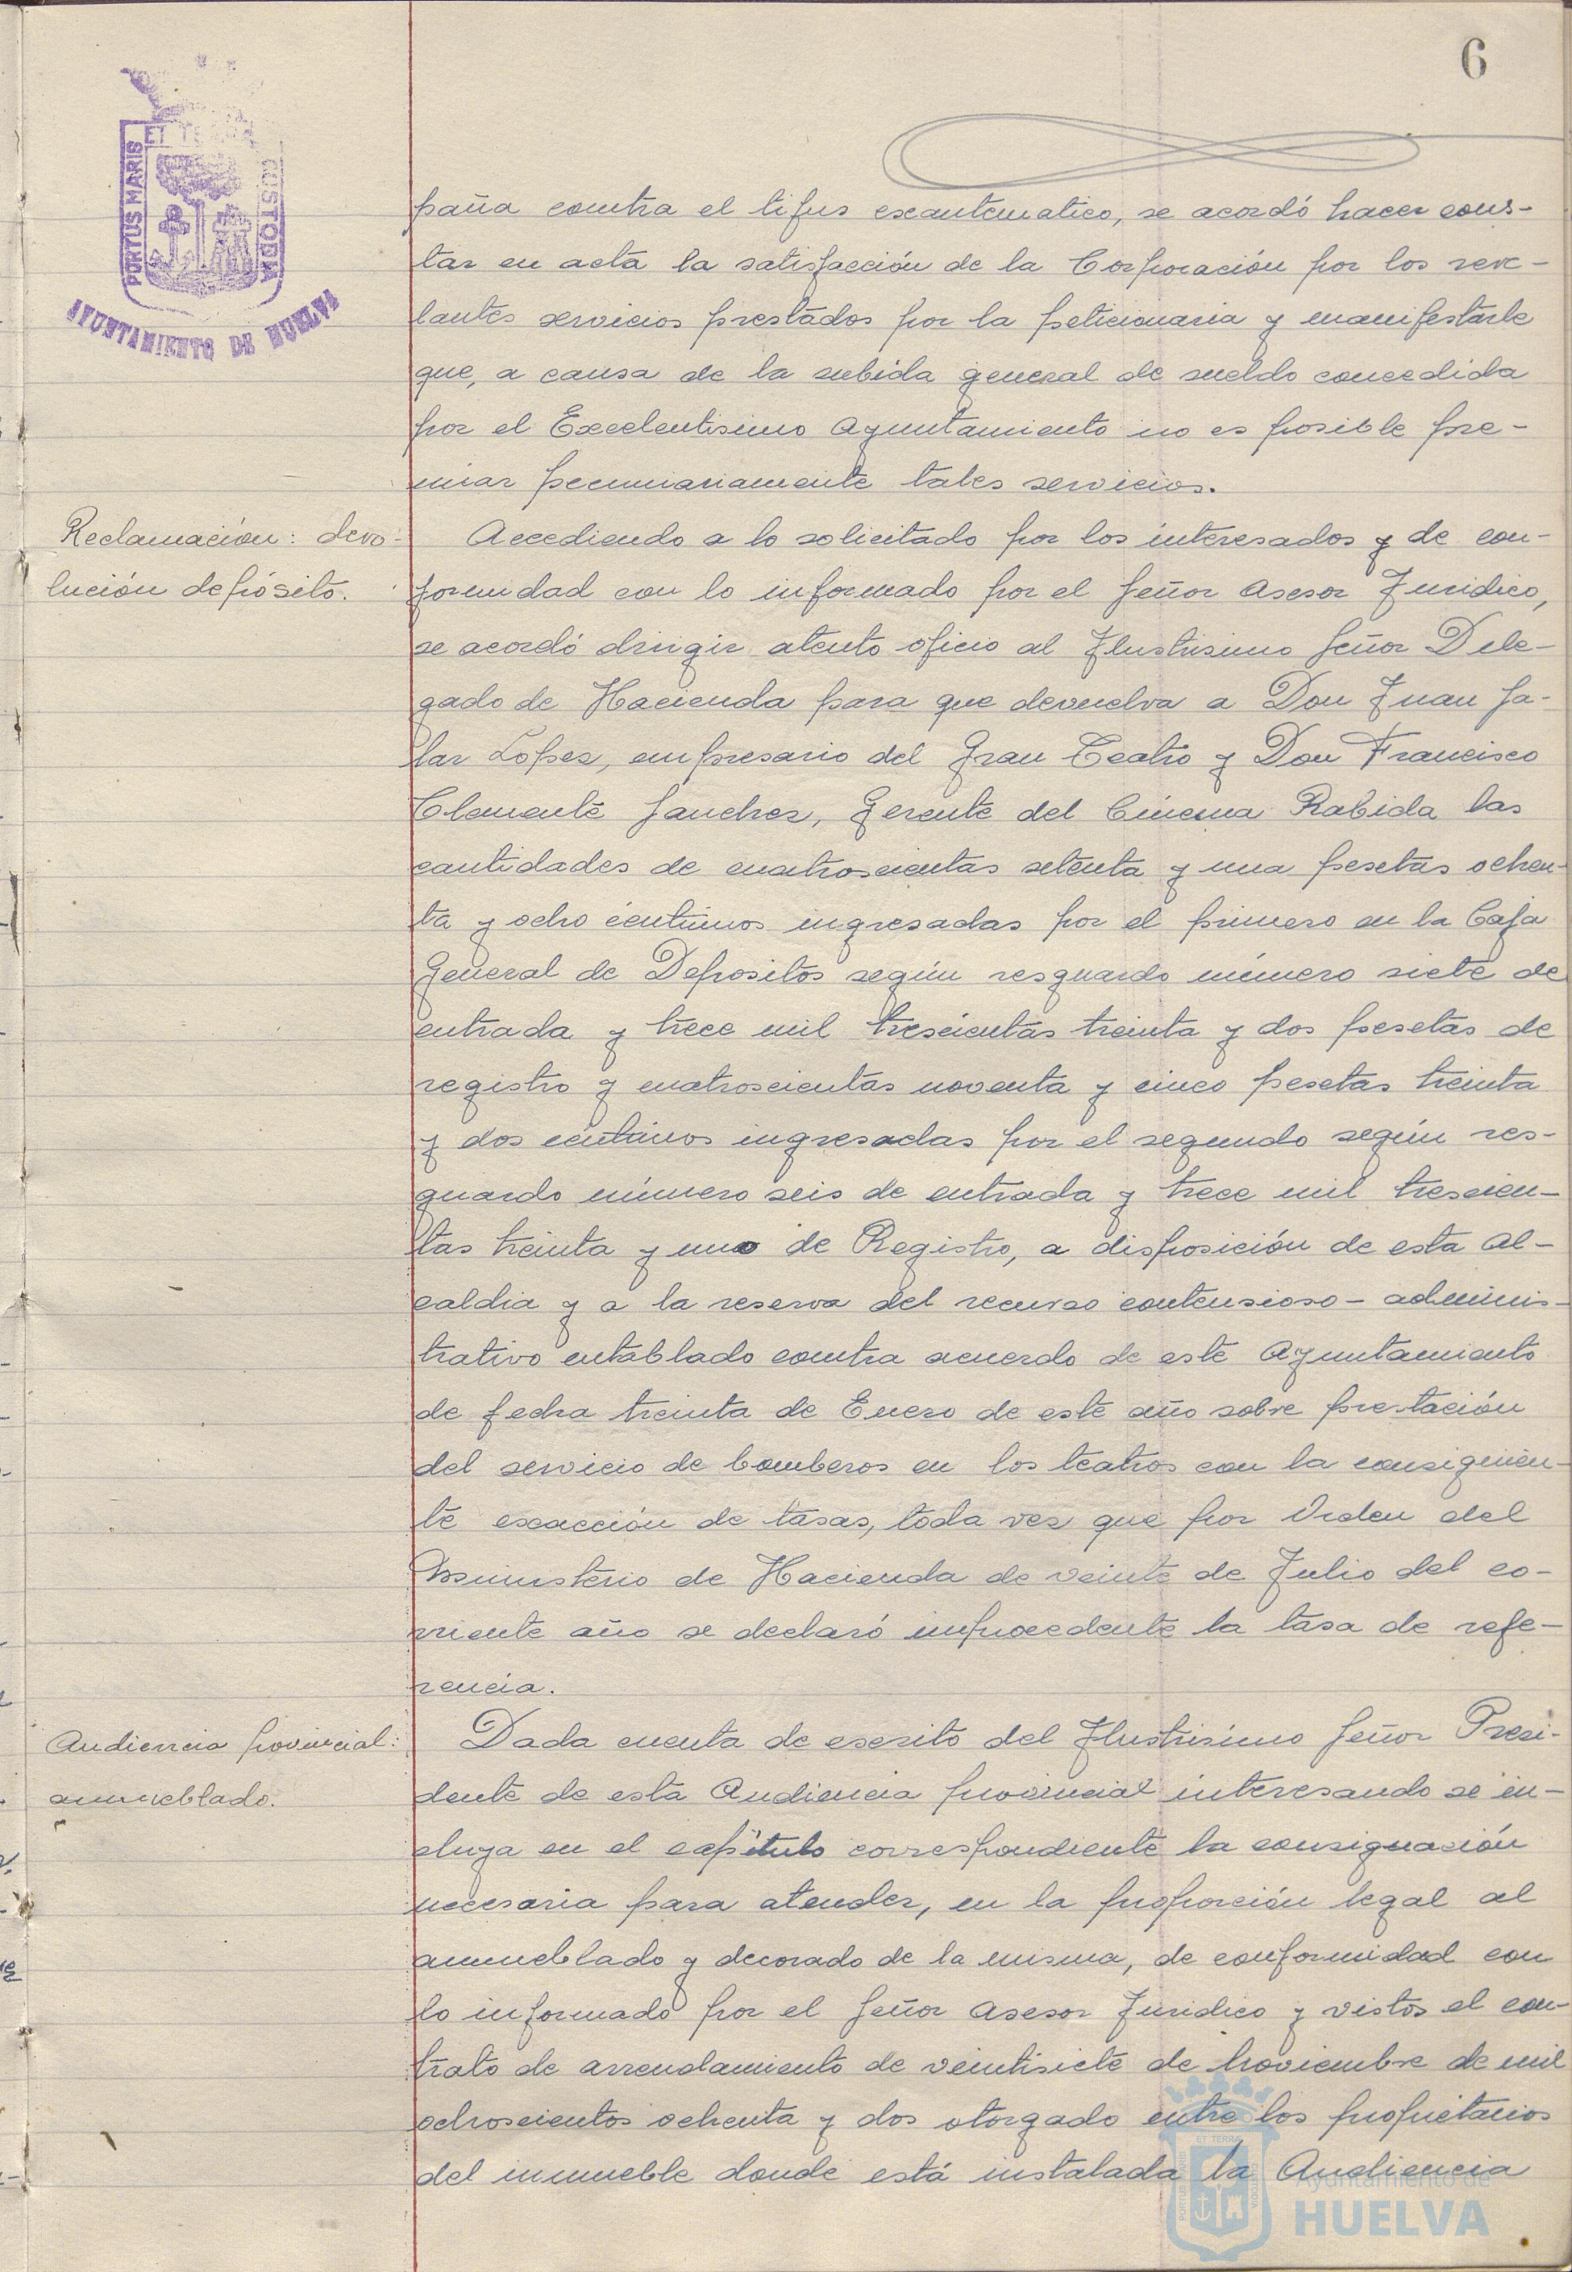 6
PORTUS MARIS
ET TERRA
CUSTODIA
AYUNTAMIENTO DE HUELVA
paña contra el tifus exantematico, se acordó hacer cons-
tar en acta la satisfacción de la Corporación por los reve-
lantes servicios prestados por la peticionaria y manifestarle
que, a causa de la subida general de sueldo concedida
por el Excelentisimo Ayuntamiento no es posible pre-
miar pecuniariamente tales servicios.
Reclamación: devo-
lución depósito.
Accediendo a lo solicitado por los interesados y de con-
formidad con lo informado por el Señor Asesor Juridico,
se acordó dirigir atento oficio al Ilustrisimo Señor Dele-
gado de Hacienda para que devuelva a Don Juan Ja-
lar Lopez, empresario del Gran Teatro y Don Francisco
Clemente Sanchez, Gerente del Cinema Rabida las
cantidades de cuatroscientas setenta y una pesetas ochen-
ta y ocho centimos ingresadas por el primero en la Caja
General de Depositos según resguardo número siete de
entrada y trece mil trescientas treinta y dos pesetas de
registro y cuatroscientas noventa y cinco pesetas treinta
y dos centimos ingresadas por el segundo según res-
guardo número seis de entrada y trece mil trescien-
tas treinta y uno de Registro, a disposición de esta Al-
caldia y a la reserva del recurso contensioso-adminis-
trativo entablado contra acuerdo de este Ayuntamiento
de fecha treinta de Enero de este año sobre prestación
del servicio de bomberos en los teatros con la consiguien-
te exacción de tasas, toda vez que por Orden del
Ministerio de Hacienda de veinte de Julio del co-
rriente año se declaró improcedente la tasa de refe-
rencia.
Audiencia provincial:
amueblado.
Dada cuenta de escrito del Ilustrisimo Señor Presi-
dente de esta Audiencia provincial interesando se in-
cluya en el capítulo correspondiente la consignación
necesaria para atender, en la proporción legal al
amueblado y decorado de la misma, de conformidad con
lo informado por el Señor Asesor Juridico y vistos el con-
trato de arrendamiento de veintisiete de Noviembre de mil
ochoscientos ochenta y dos otorgado entre los propietarios
del inmueble donde está instalada la Audiencia
Ayuntamiento de
HUELVA